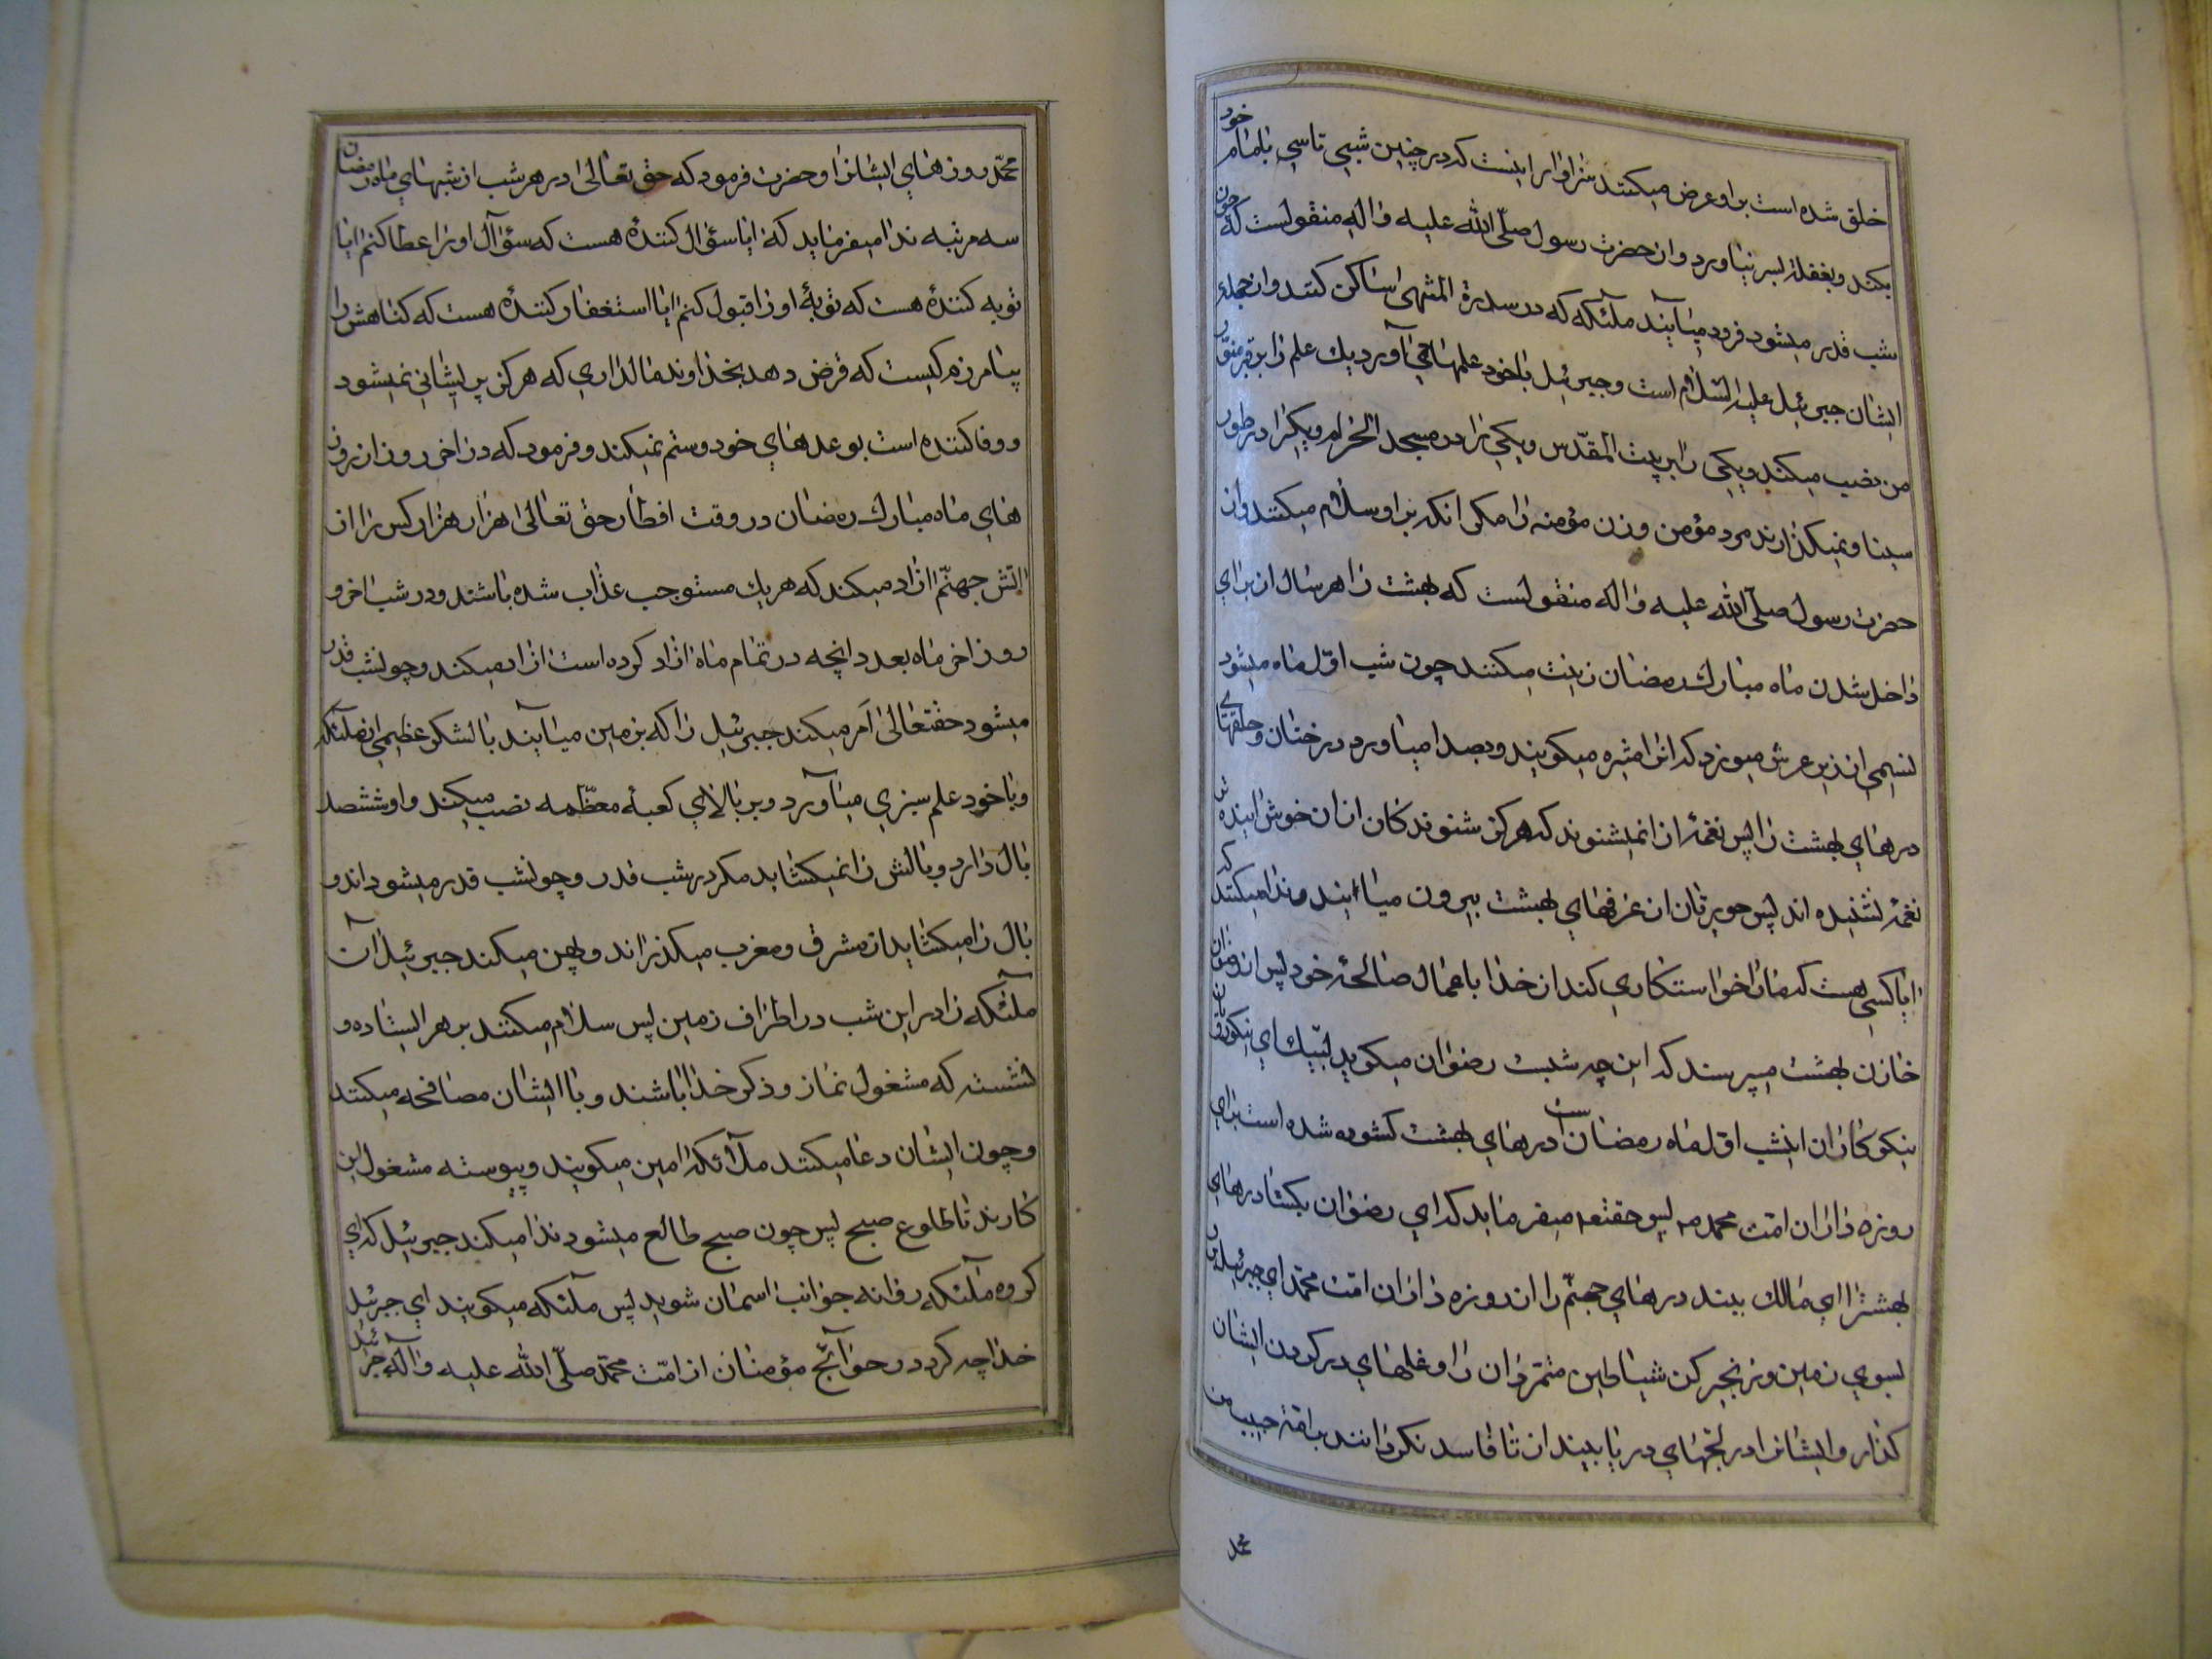 خلق شده است بر او عرض میکنند سزاوار اینست که در چنین شبی تاسی بامام خود
بکند و بغفلت بسر نیاورد و از حضرت رسول صلّی الله علیه و اله منقولست که چون
شب قدر میشود فرود میآیند ملآئکه که در سدرة المنتهی ساکن کنند و از جمله
ایشان جبرئیل علیه السّلام است و جبرئیل باخود علمها می آورد یك علم را بر قبر منوّر
من نصب میکند و یکی را بر بیت المقدّس و یکی را در مسجد الحرام و یکیرا در طور
سینا و نمیکذارند مرد مؤمن و زن مؤمنه را مکر انکه بر او سلام میکنند و از
حضرت رسول صلّی الله علیه و اله منقولست که بهشت را هر سال از برای
داخل شدن ماه مبارك رمضان زینت میکنند چون شب اوّل ماه میشود
نسیمی از زیر عرش میوزد که انرا مثیره میکویند و بصدا میاورد درختان و حلقهای
درهای بهشت را پس نغمهٔ ازان میشنوند که هرکز شنوندکان ازان خوش ایندهتر
نغمه نشنیده اند پس حوریان از غرفهای بهشت بیرون میاایند و ندا میکنند که
ایا کسی هست که مارا خواستکاری کند از خدا باعمال صالحهٔ خود پس از رضوان
خازن بهشت میپرسند که این چه شبست رضوان میکوید لبّیك ای نیکورویان
نیکو کاران اینشب اوّل ماه رمضان است درهای بهشت کشوده شده است برای
روزه داران امّت محمد صم پس حقتعه میفرماید که ای رضوان بکشا درهای
بهشترا ای مالك ببند درهای جهنّم را از روزه داران امّت محمّد ای جبرئیل برو
بسوی زمین و زنجیر کن شیاطین متمرّدان را و غلهای در کردن ایشان
کذار و ایشانرا در لجّهای دریا بیندازتا فاسد نکردانند بر امّت حبیب من
محمد
محمّد روزهای ایشانرا و حضرت فرمود که حق تعالی در هر شب از شبهای ماه رمضان
سه مرتبه ندا میفرماید که ایا سؤال کنندهٔ هست که سؤآل او را عطا کنم ایا
توبه کنندهٔ هست که توبهٔ او را قبول کنم ایا استغفار کنندهٔ هست که کناهش را
بیامرزم کیست که قرض دهد بخداوند مالداری که هرکز پریشانی نمیشود
و وفا کننده است بوعدهای خود و ستم نمیکند و فرمود که در اخر روز از روز
های ماه مبارك رمضان در وقت افطار حق تعالی هزار هزار کس را از
اتش جهنّم ازاد میکند که هر یك مستوجب عذاب شده باشند و در شب اخر و
روز اخر ماه بعدد انچه در تمام ماه ازاد کرده است ازاد میکند و چونشب قدر
میشود حقتعالی امر میکند جبرئیل را که بزمین میآیند با لشکر عظیمی از ملآئکه
و باخود علم سبزی میآورد و بر بالای کعبهٔ معظّمه نصب میکند و او ششصد
بال دارد و بالش را نمیکشاید مکر در شب قدر و چونشب قدر میشود اندو
بال را میکشاید از مشرق و مغرب میکذراند و پهن میکند جبرئیل آن
ملآئکه را در این شب در اطراف زمین پس سلام میکنند بر هر ایستاده و
نشسته که مشغول نماز و ذکر خدا باشند و با ایشان مصافحه میکنند
و چون ایشان دعا میکنند ملآئکه امین میکویند و پیوسته مشغول این
کارند تا طلوع صبح پس چون صبح طالع میشود ندا میکند جبرئیل که ای
کروه ملآئکه روانه جوانب اسمان شوید پس ملآئکه میکویند ای جبرئیل
خدا چه کرد در حوآئج مؤمنان از امّت محمّد صلّی الله علیه و آله جبرائیل